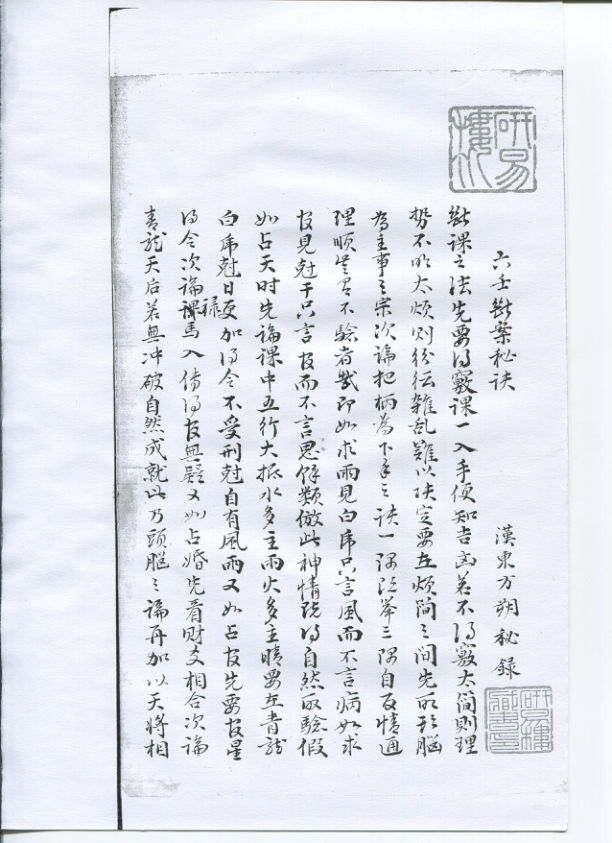 研易樓
六壬斷案秘訣
漢東方朔秘錄
斷課之法先要得竅課一入手便知吉凶若不得竅太簡則理
勢不明太煩則紛紜雜亂難以決定要在煩簡之間先取頭腦
為主事之宗次論把柄為下手之訣一隅既舉三隅自反情通
理順豈有不驗者哉即如求雨見白虎只言風而不言病如求
官見尅干只言官而不言鬼餘類倣此神情既得自然取驗假
如占天時先論課中五行大抵水多主雨火多主晴要在青龍
白虎尅日更加得令不受刑尅自有風雨又如占官先要官星
得令次論祿馬入傳得官無疑又如占婚先看財爻相合次論
青龍天后若無冲破自然成就此乃頭腦之論再加以天將相
研易樓藏書印